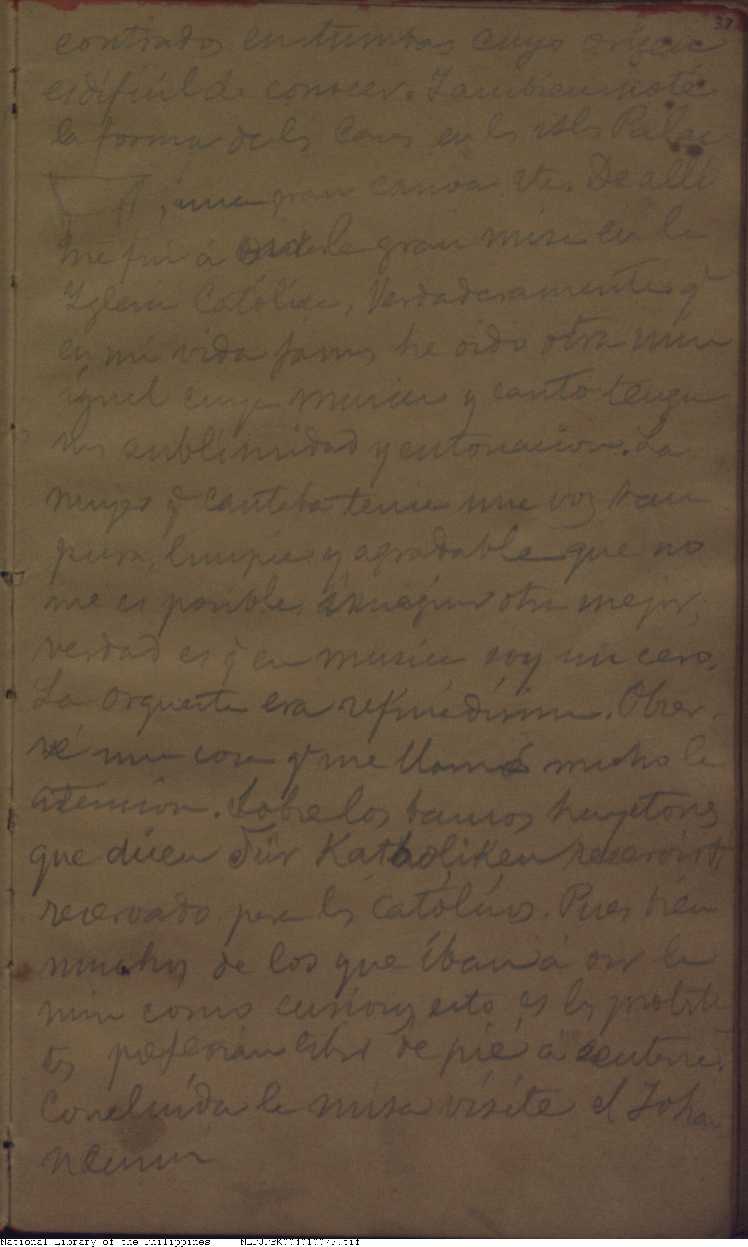 37
contrados en tumbas cuyo origen
es dificil de conocer. Tambien noté
la forma de ls casas en ls isls Palau
, una gran canoa etc. De allí
me fuí á oir la gran misa en la
Iglesia Católica, Verdaderamente q
en mi vida jamas he oido otra misa
igual cuya musica y canto tenga
mas sublimidad y entonacion. La
q cantaba tenia una voz tan
pura, limpia y agradable que no
me es posible imaginar otra mejor,
verdad es q en musica soy un cero.
La orquesta era refinadisima. Obser-
vé una cosa q me llamó mucho la
atencion. Sobre los bancos hay
que dicen Für Katholiken reservirt
reservado para ls católicos. Pues bien
muchos de los que iban á oir la
misa como curiosos esto es ls protestan
tes preferian estar de pié á sentarse.
Concluída la misa visité el Johan
neum
National Library of the Philippines